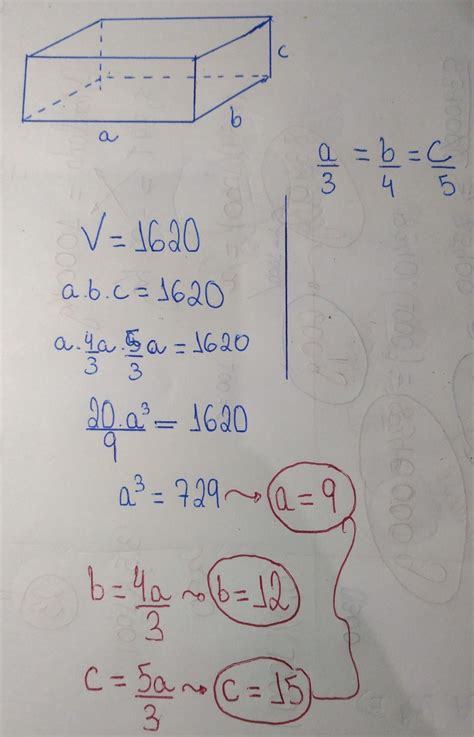 c
b
a
a/3 = b/4 = c/5
V = 1620
a.b.c = 1620
a. 4a/3 . 5/3 a = 1620
20.a³/9 = 1620
a³ = 729 ⤳ a = 9
b = 4a/3 ⤳ b = 12
c = 5a/3 ⤳ c = 15